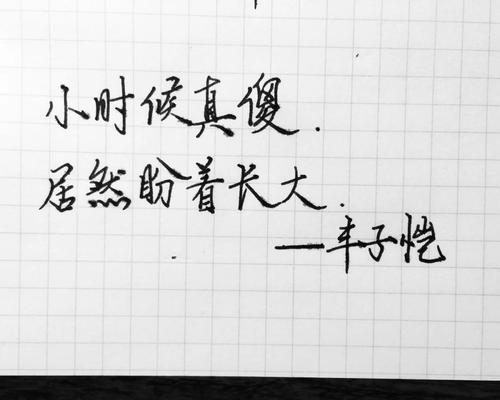 小时候真傻.
居然盼着长大.
——丰子恺